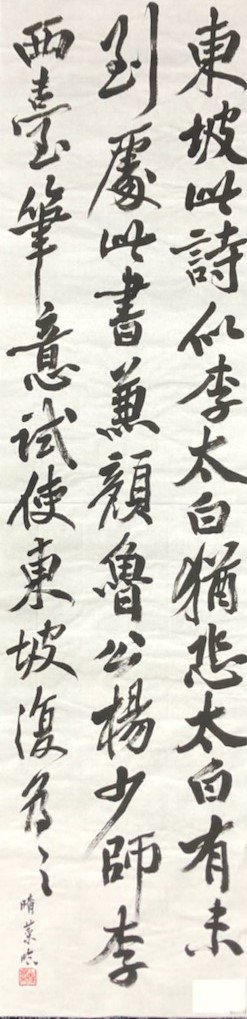 東坡此詩似李太白猶恐太白有未
到處此書兼顏魯公楊少師李
西臺筆意試使東坡復為之
晴葉臨